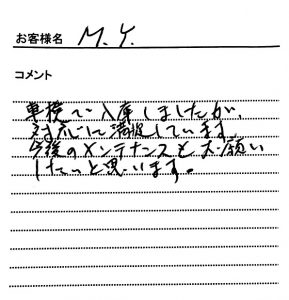 お客様名 M.Y.
コメント
車検で入庫しましたが、
対応に満足しています。
今後のメンテナンスもお願い
したいと思います。